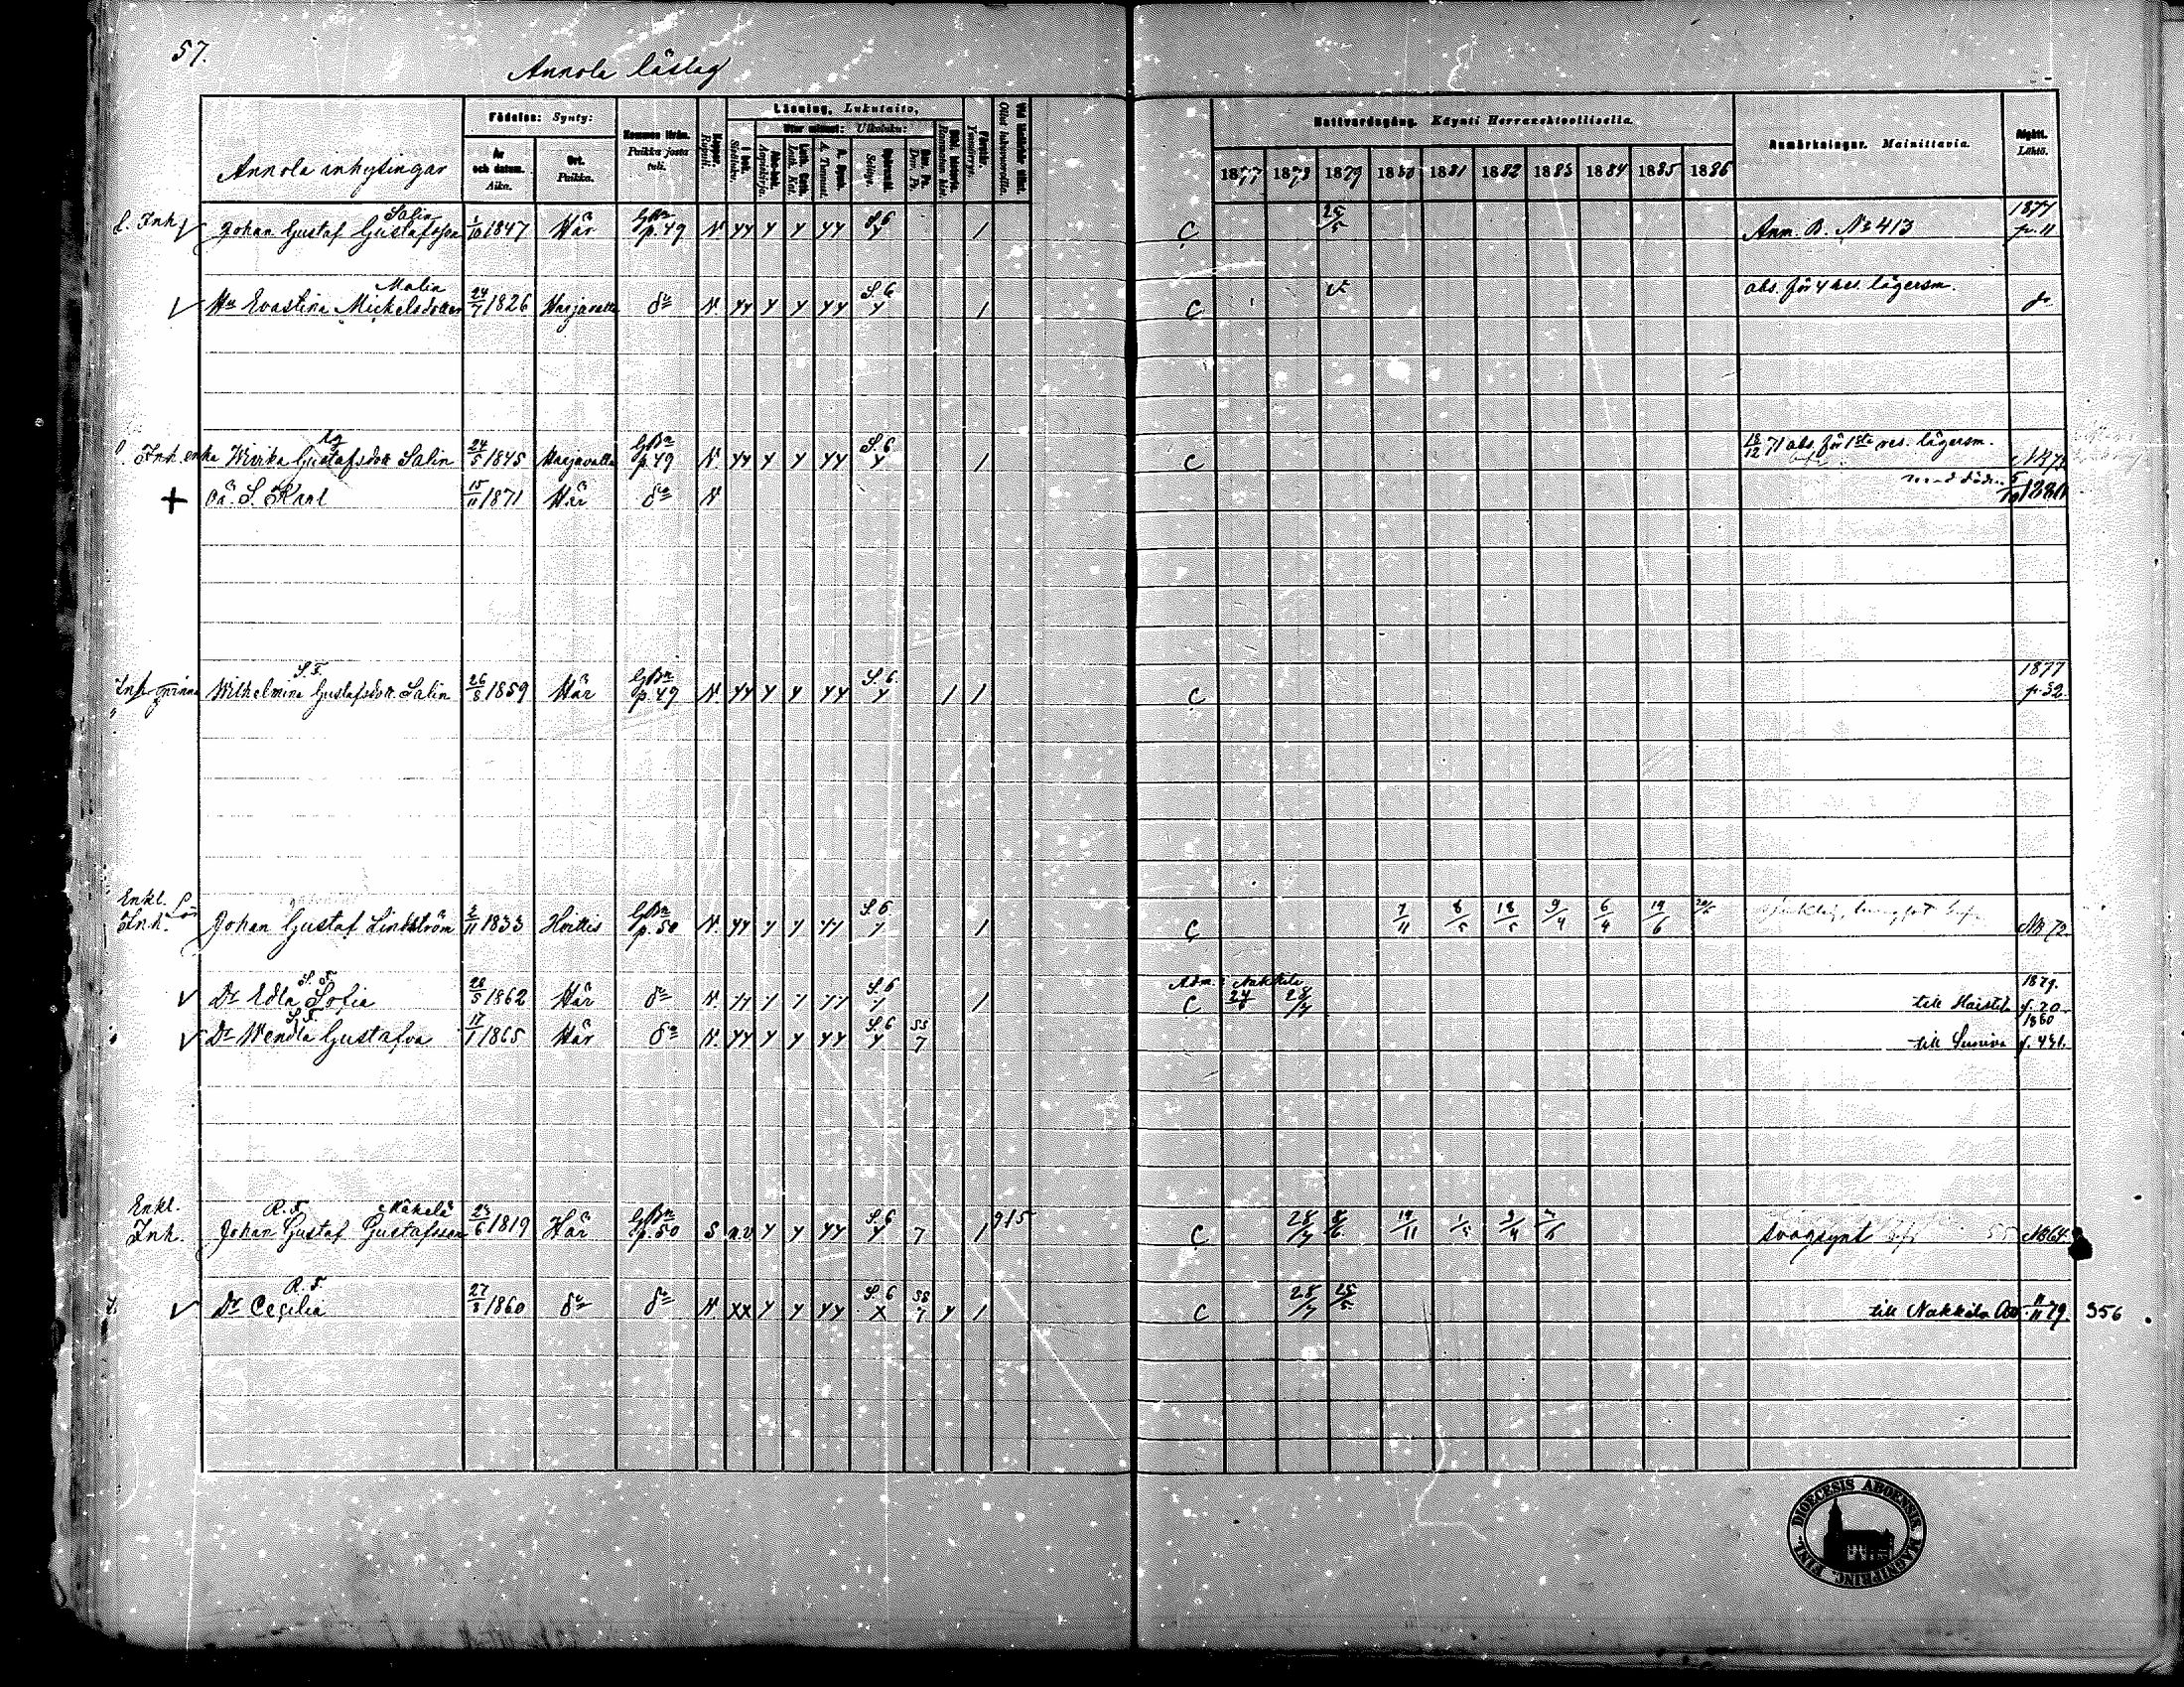 57.
Annola läslag
Annola inhysingar
Födelse: Synty:
År och datum. Aika.
Ort. Paikka.
Kommen ifrån. Paikka josta tuli.
Koppor. Rupuli.
Läsning, Lukutaito,
I bok. Sisäluku.
Utur minnet: Ulkoluku:
Abc-bok. Aapiskirja.
Luth. Cath. Luth. Kat.
A. Symb. A. Tunnust.
Spörsmål. Selitys.
Dav. Ps. Dav. Ps.
Bibl. historia. Raamatun hist.
Förstår. Ymmärrys.
Nattvardsgång. Käynti Herranehtoollisella.
1877 1878 1879 1880 1881 1882 1883 1884 1885 1886
Anmärkningar. Mainittavia.
Afgått. Lähtö.
Inh. Johan Gustaf Gustafsson Salin 1/10 1847 Här p. 49 N. yy y y yy S.6 y / C 25/5 Anm. B. No 413 1877 p. 11
Hu Evastina Mickelsdotter Malin 24/7 1826 Harjavalta do N. yy y y yy S.6 y / C abs. för 4 hes. lägersm. do
Inh. enka Wivika Gustafsdotr Salin 24/5 1845 Harjavalta p. 49 N. yy y y yy S.6 y / C 18/12 71 abs. för 1sta res. lägersm.
+ oä. S. Karl 15/11 1871 Här do N
Inh. qvinna Wilhelmina Gustafsdotr Salin S. F. 26/8 1859 Här p. 49 N. yy y y yy S.6. y / / C 1877 p. 32.
Enkl.
Inh. Johan Gustaf Lindström 2/11 1833 Hvittis p. 50 N. yy y y yy S.6 y / C 7/11 8/5 18/5 9/4 6/4 19/6 NB 72.
Dr Edla Sofia S. F. 28/5 1862 Här do N. yy y y yy S.6 y / Adm. i Nakkila C 28/7 till Haistila 1879. p. 20
Dr Wendla Gustafva S. F. 17/1 1865 Här do N. yy y y yy S.6 y 55 7 till 1880 p. 431.
Enkl.
Inh. Johan Gustaf Gustafsson R. F. Mäkelä 23/6 1819 Här p. 50 S y y yy S.6 y 7 / 915 C 28/7 8/6 19/11 1/5 svagsynt NB 64.
Dr Cecilia R. F. 27/8 1860 do do N xx y y yy S.6 x 58 7 y / C 28/7 25/5 till Nakkila 11/11 79. 356
DIOECESIS ABOENSIS MAGNIPRINC. FINL.